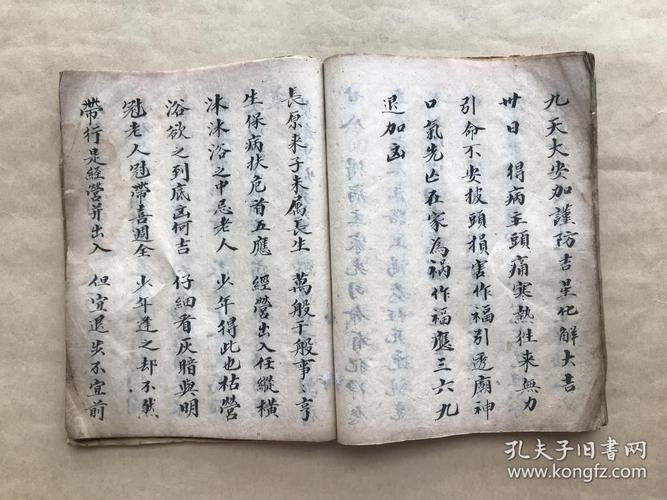 九天大安加謹防吉星化解大吉
卅日　得病主頭痛寒熱往來無力
引命不安披頭損害作福引透廟神
口氣先亡在家為禍作福應三六九
退加凶
長原來子未屬長生　萬般千般事〻亨
生保病扶危前五應　經營出入任縱橫
沐沐浴之中忌老人　少年得此也枯營
浴欲之到底凶何吉　仔細看灰暗與明
冠老人冠帶喜週全　少年逢之却不然
帶行是經營并出入　但宜退步不宜前
孔夫子旧书网
www.kongfz.com